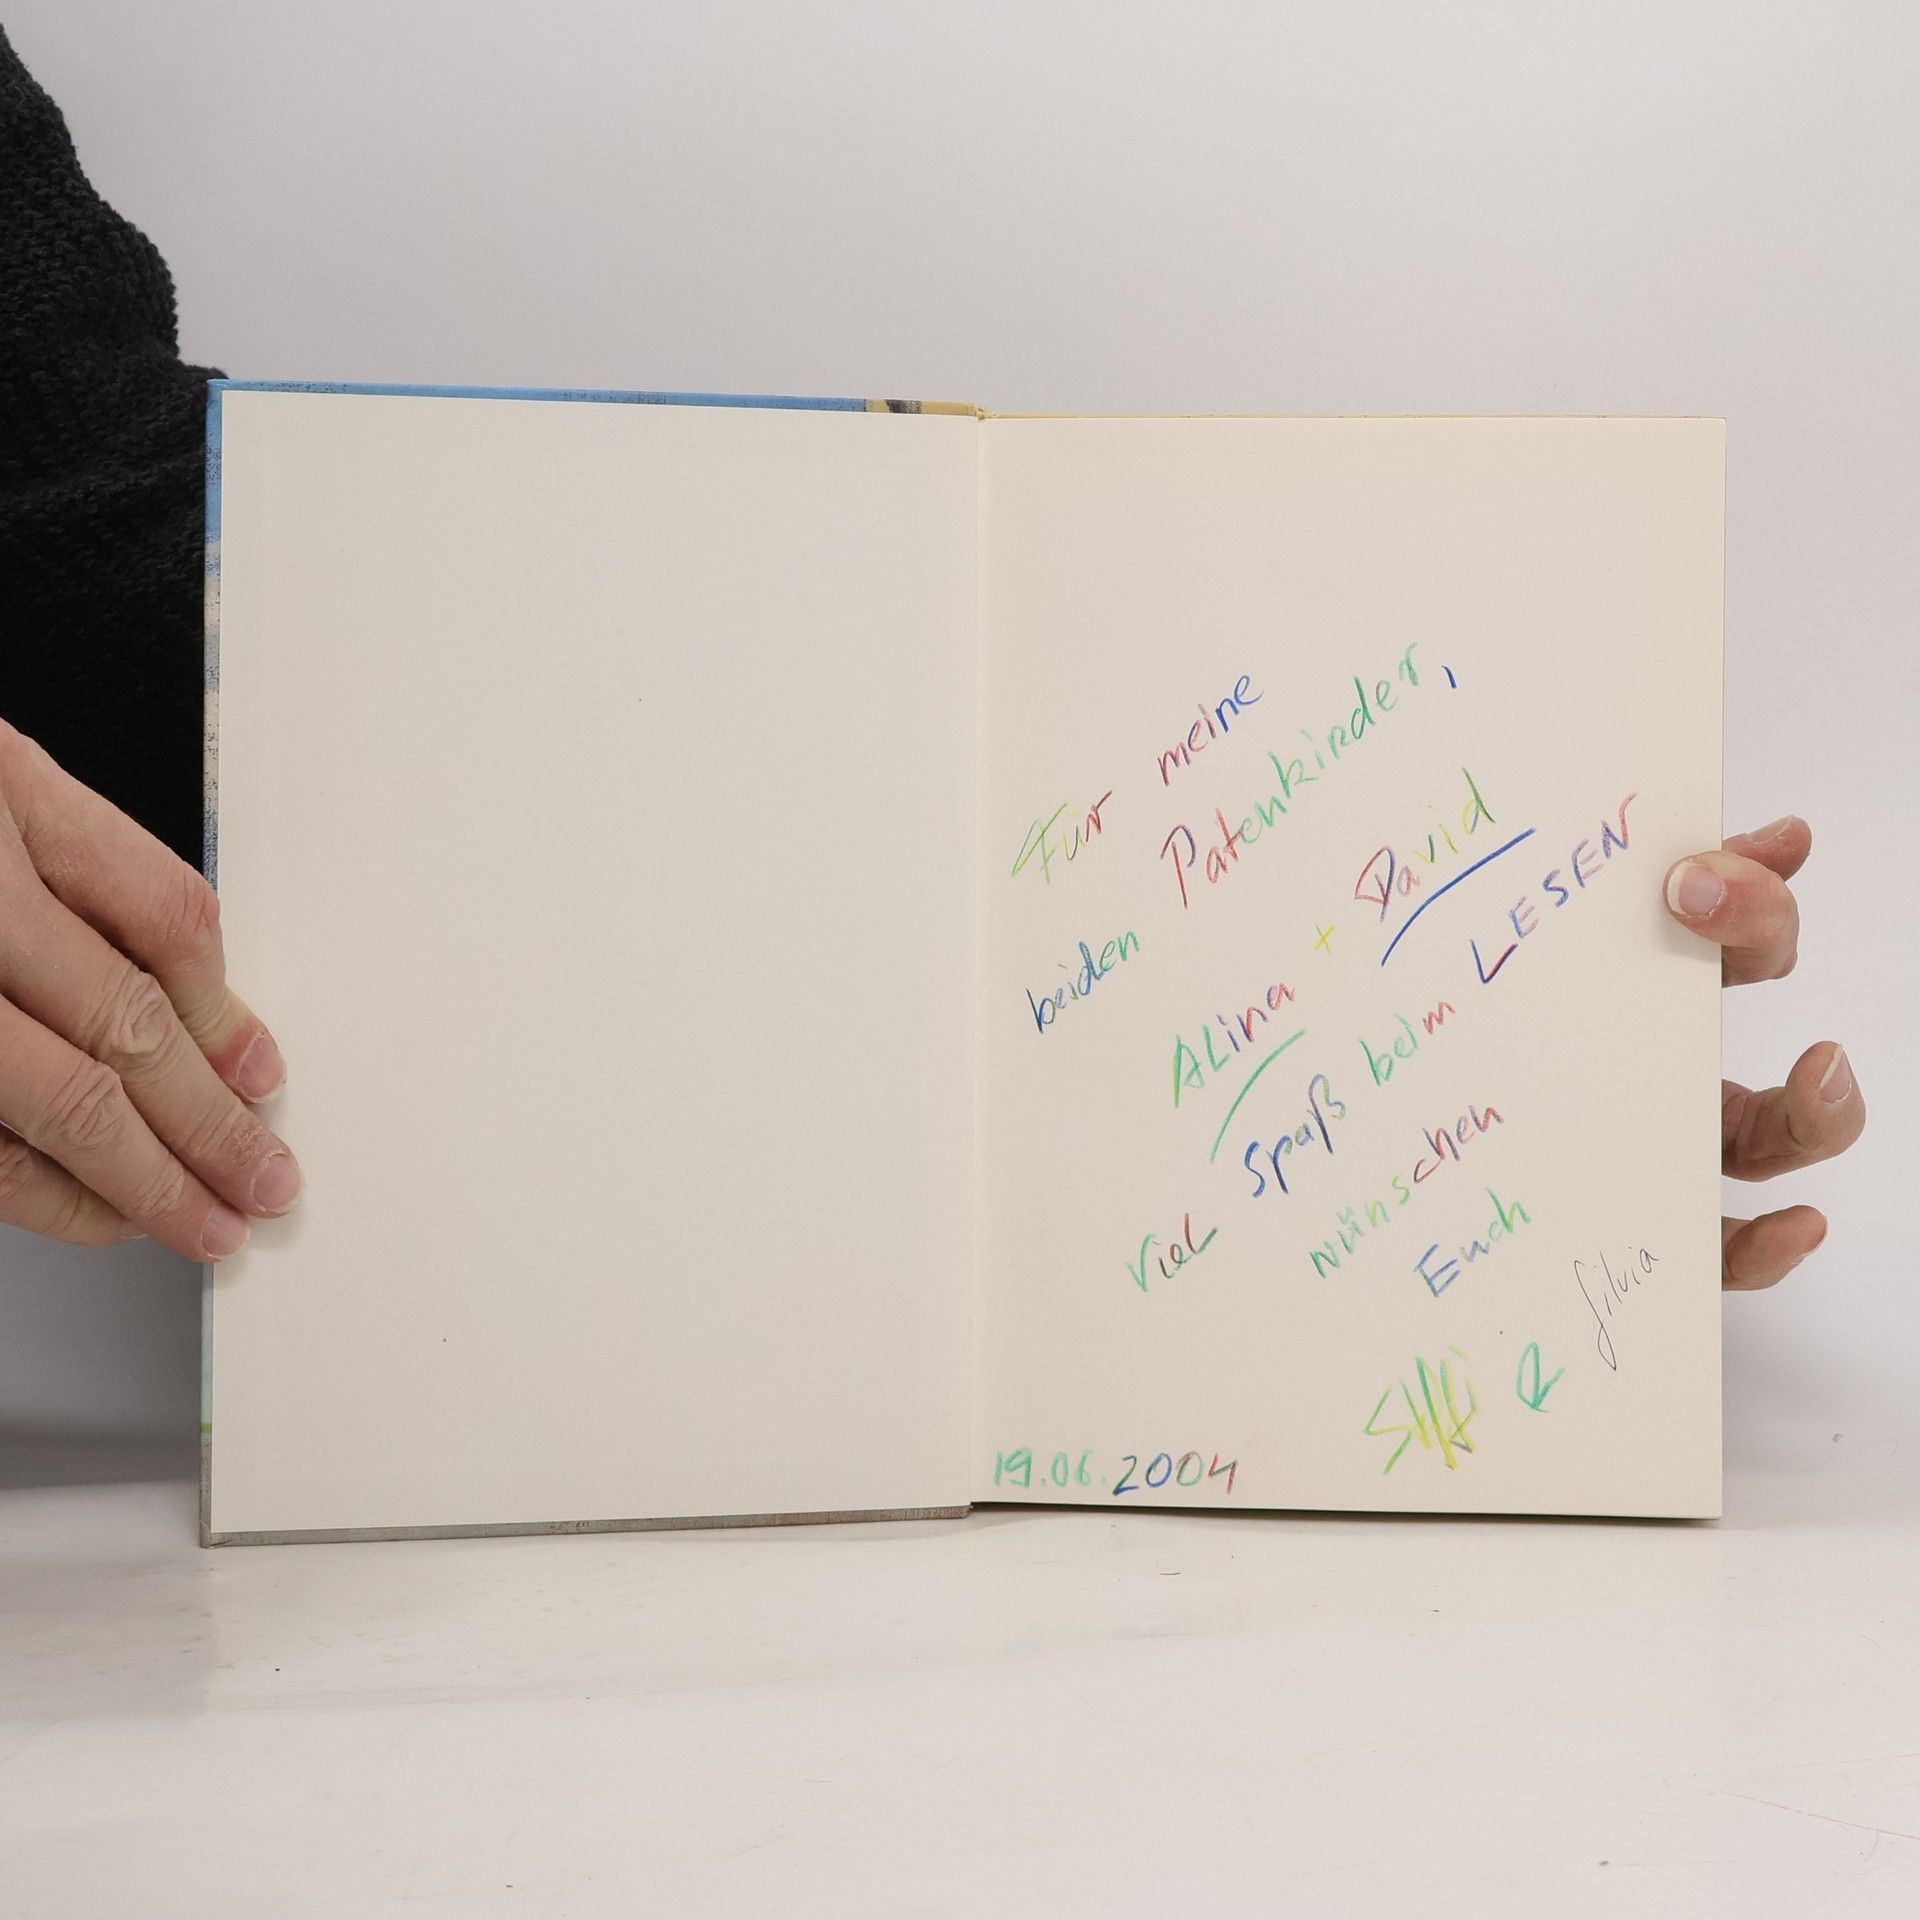 Für meine
beiden Patenkinder,
ALina + David
Viel Spaß beim LESEN
wünschen
Euch
Steffi & Silvia
19.06.2004